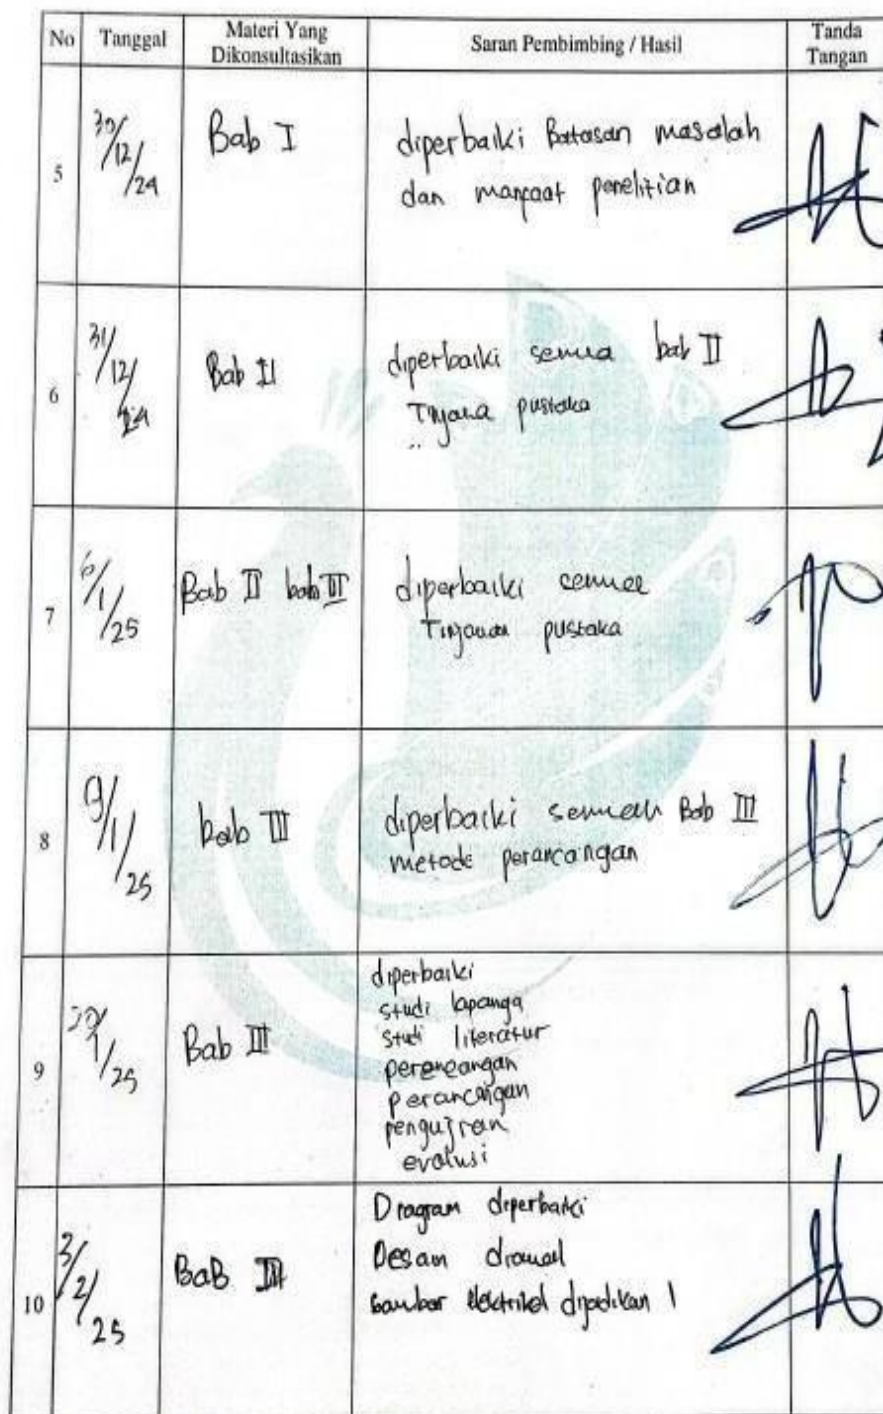 No Tanggal Materi Yang Dikonsultasikan Saran Pembimbing / Hasil Tanda Tangan
5 30/12/24 Bab I diperbaiki Batasan masalah
dan manfaat penelitian
6 31/12/24 Bab II diperbaiki semua bab II
pustaka
7 6/1/25 Bab II bab III diperbaiki
pustaka
8 9/1/25 bab III diperbaiki Bab III
metode perancangan
9 /1/25 Bab III diperbaiki
studi lapanga
studi literatur
perancangan
pengujian
evalusi
10 3/2/25 BaB III Diagram diperbaiki
Desain diawal
Gambar elektrikel dijadikan 1